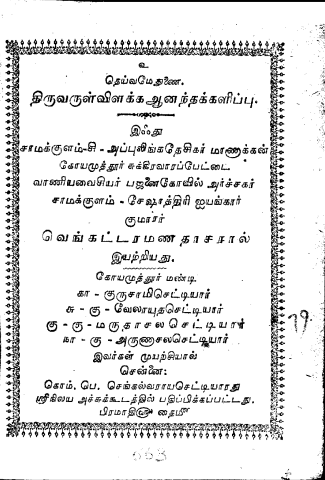 உ
தெய்வமேதுணை.
திருவருள்விளக்கஆனந்தக்களிப்பு.
இஃது
சாமக்குளம்-சி-அப்புலிங்கதேசிகர் மாணாக்கன்
கோயமுத்தூர் சுக்கிரவாரப்பேட்டை
வாணியவைசியர் பஜனைகோவில் அர்ச்சகர்
சாமக்குளம்-சேஷாத்திரி ஐயங்கார்
குமாரர்
வெங்கட்டரமணதாசரால்
இயற்றியது.
கோயமுத்தூர் மண்டி
கா-குருசாமிசெட்டியார்
சு-கு-வேலாயுதசெட்டியார்
கு-கு-மருதாசலசெட்டியார்
நா-கு-அருணாசலசெட்டியார்
இவர்கள் முயற்சியால்
சென்னை:
கொம். பெ. செங்கல்வராயசெட்டியாரது
ஸ்ரீநிலய அச்சுக்கூடத்தில் பதிப்பிக்கப்பட்டது.
பிரமாதி௵ தைமீ